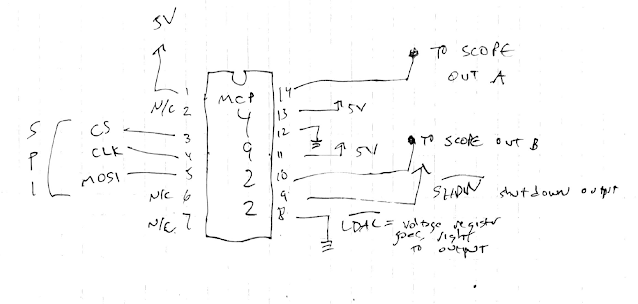 5V
1
N/C 2
CS 3
CLK 4
MOSI 5
N/C 6
N/C 7
SPI
MCP
4
9
2
2
14 TO SCOPE
OUT A
13 5V
12
11 5V
10 TO SCOPE OUT B
9 SHDN shutdown output
8
LDAC = voltage registr
goes right
to output